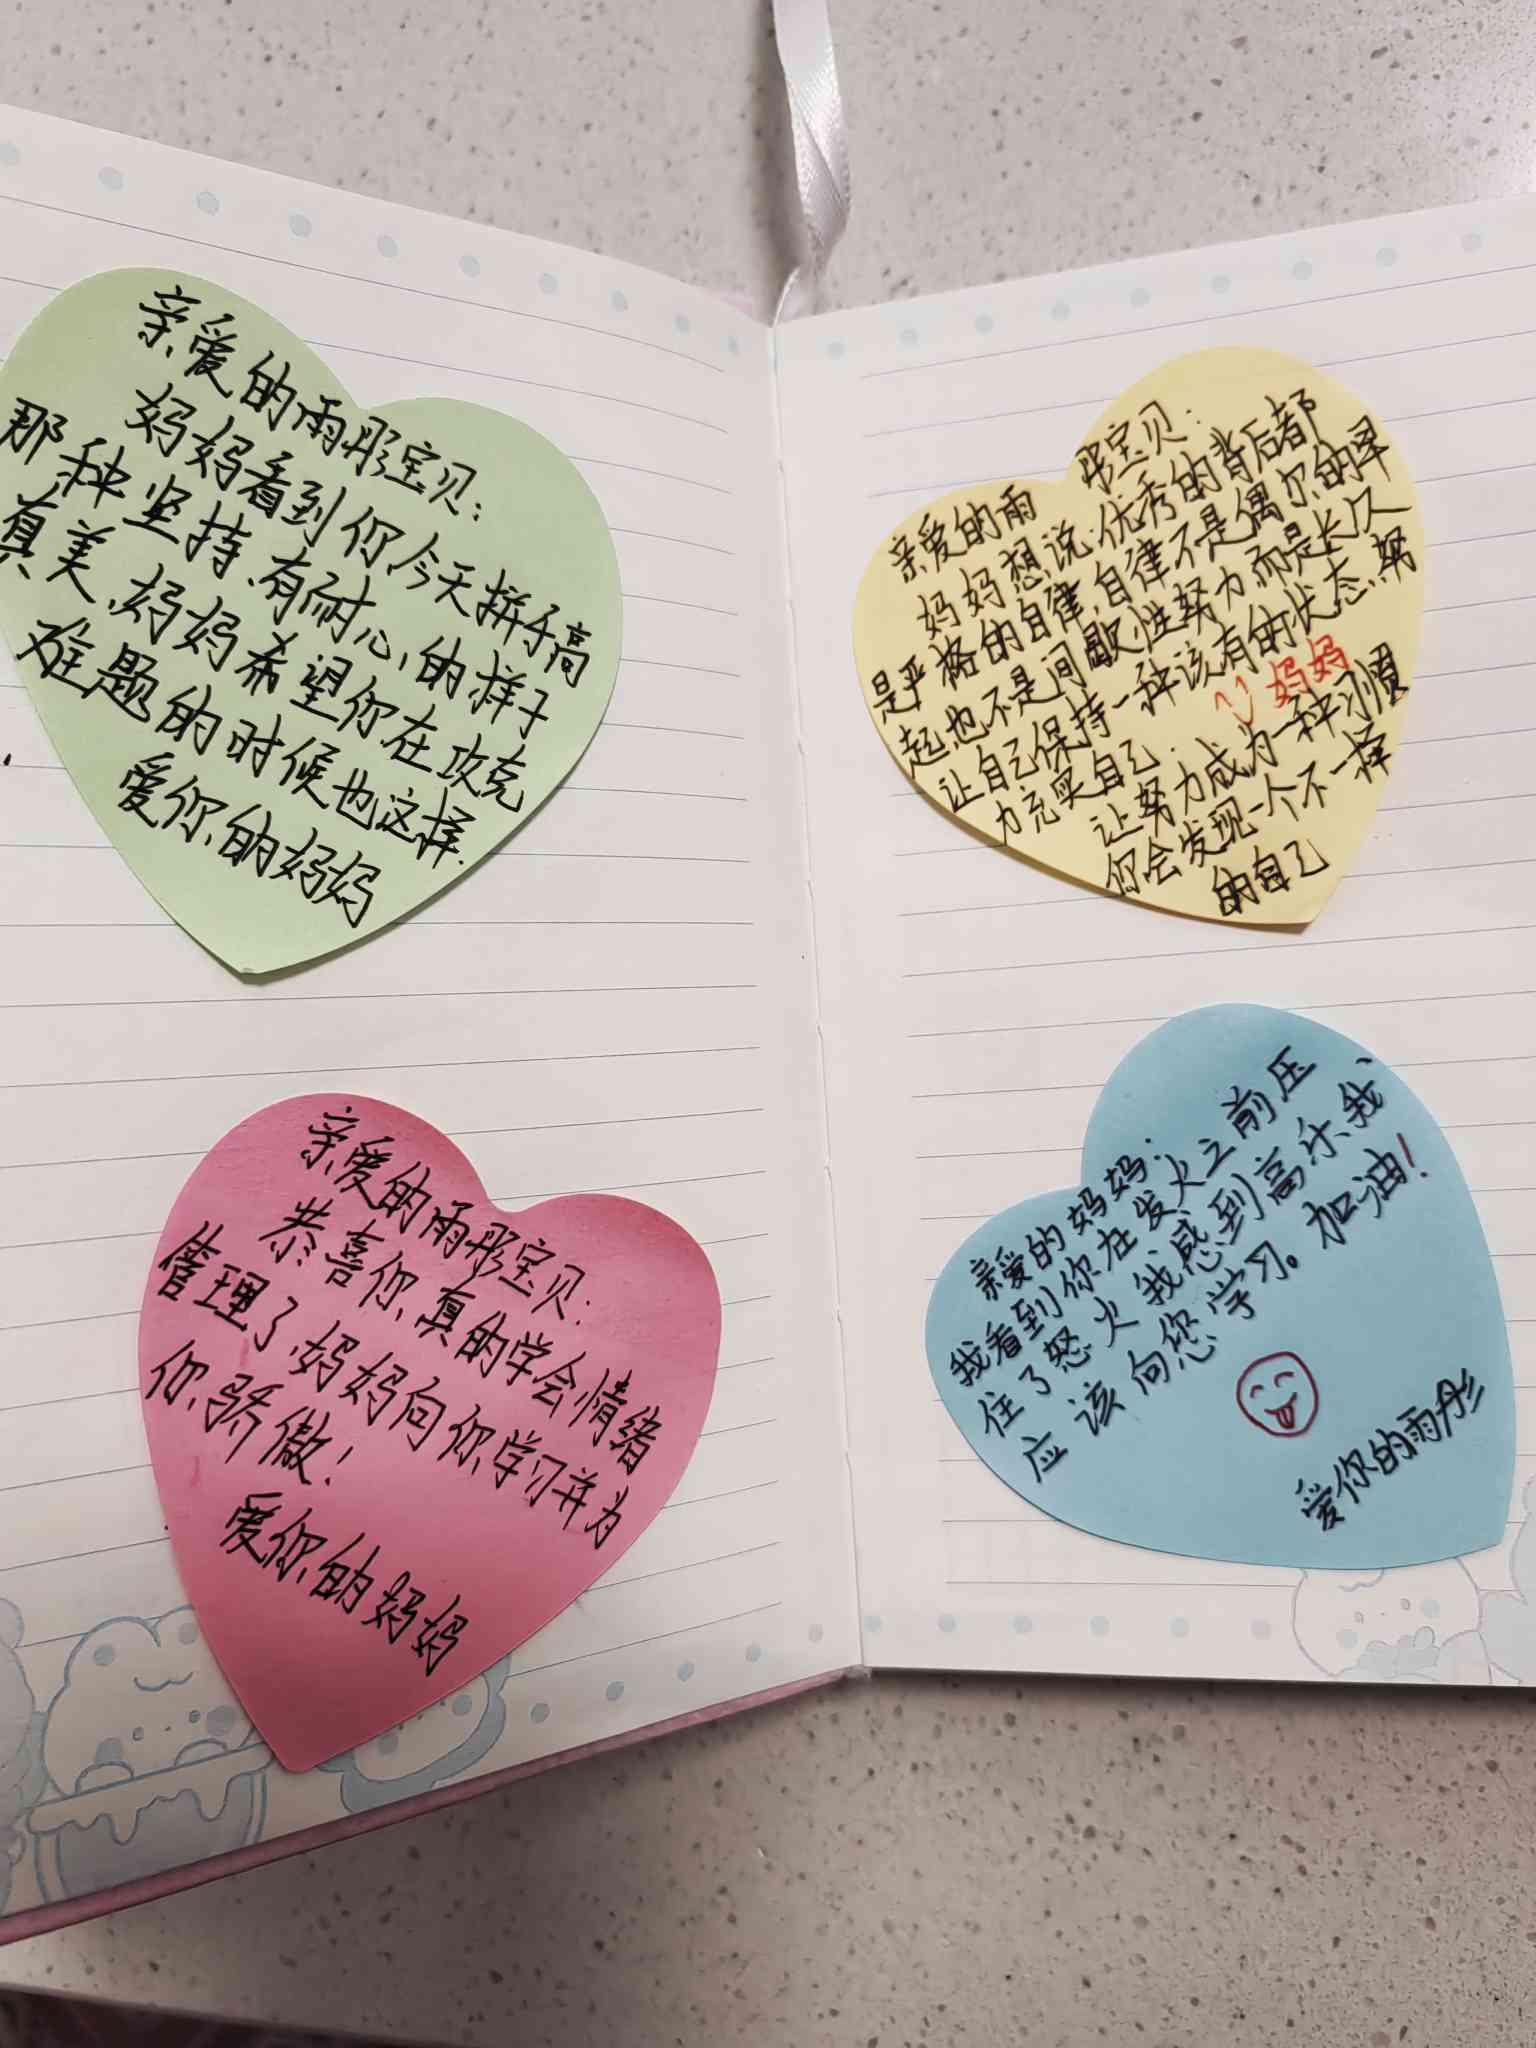 亲爱的雨彤宝贝：
妈妈看到你今天拼乐高
那种坚持、有耐心、的样子
真美、妈妈希望你在攻克
难题的时候也这样.
爱你的妈妈
亲爱的雨彤宝贝：
恭喜你、真的学会情绪
管理了、妈妈向你学习并为
你、骄傲！
爱你的妈妈
亲爱的雨 彤宝贝：
妈妈想说：优秀的背后都
是严格的自律、自律不是偶尔的早
起也不是间歇性努力而是长久
让自己保持一种该有的状态、努
力充实自己.
妈妈
让努力成为一种习惯
你会发现一个不一样
的自己
亲爱的妈妈：
我看到你在发火之前压
住了怒火、我感到高乐、我
应该向您学习。加油！
爱你的雨彤